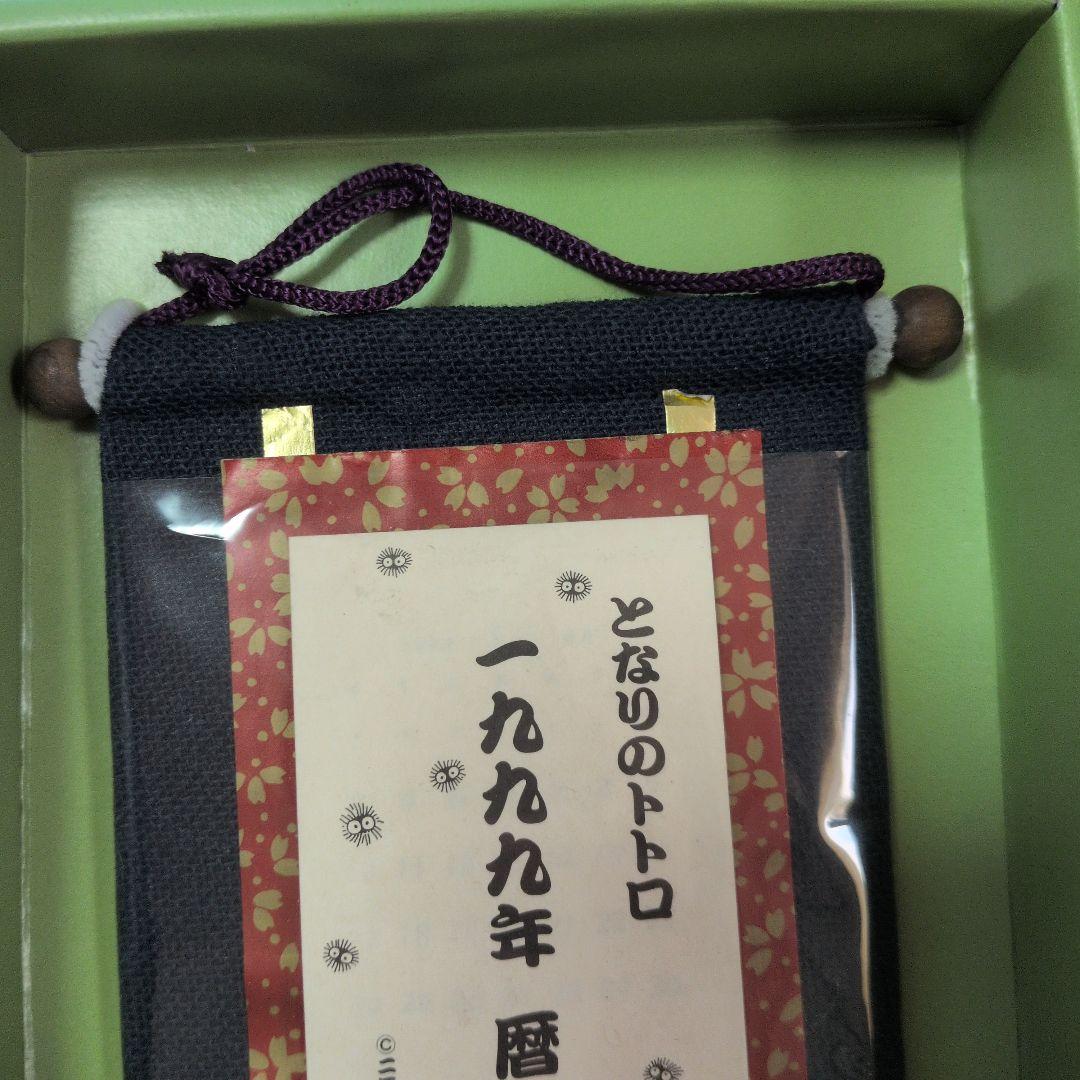 となりのトトロ
一九九九年 暦
©二